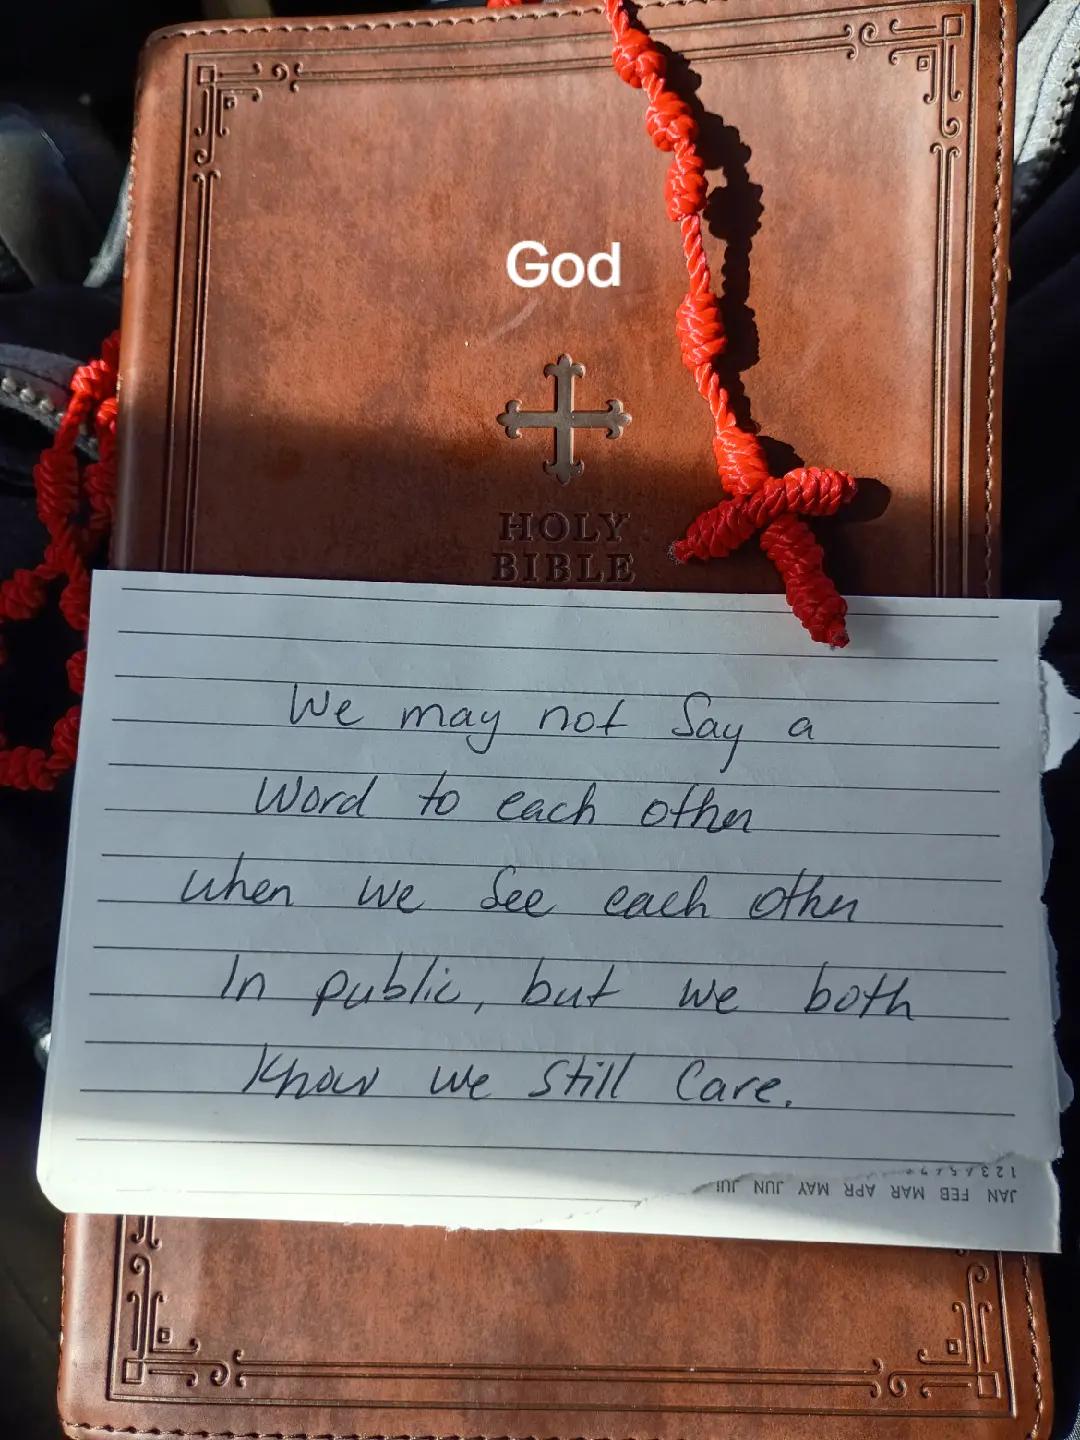 God
HOLY
BIBLE
We may not Say a
Word to each other
when we See each other
In public, but we both
Know we Still Care.
JAN FEB MAR APR MAY JUN
1 2 3 4 5 6 7